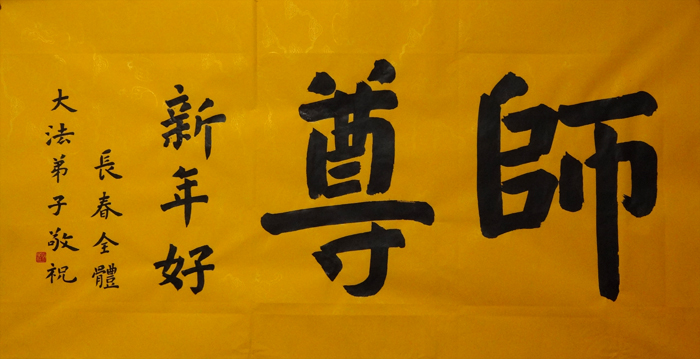 師尊
新年好
長春全體
大法弟子敬祝